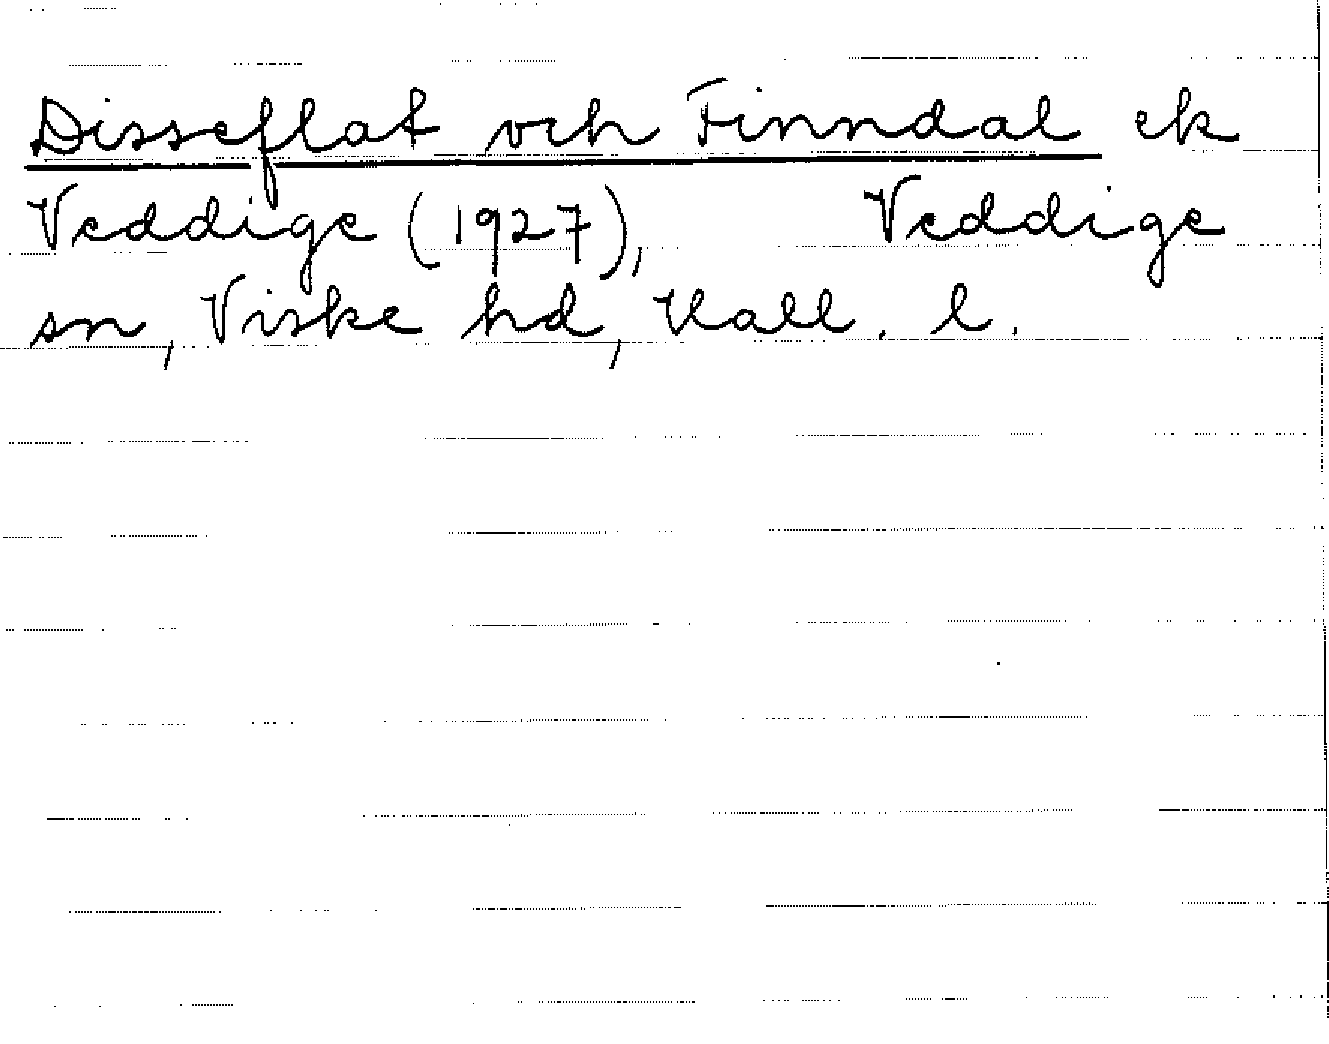 Disseflat och Finndal ek
Veddige (1927), Veddige
sn, Viske hd, Hall. l.